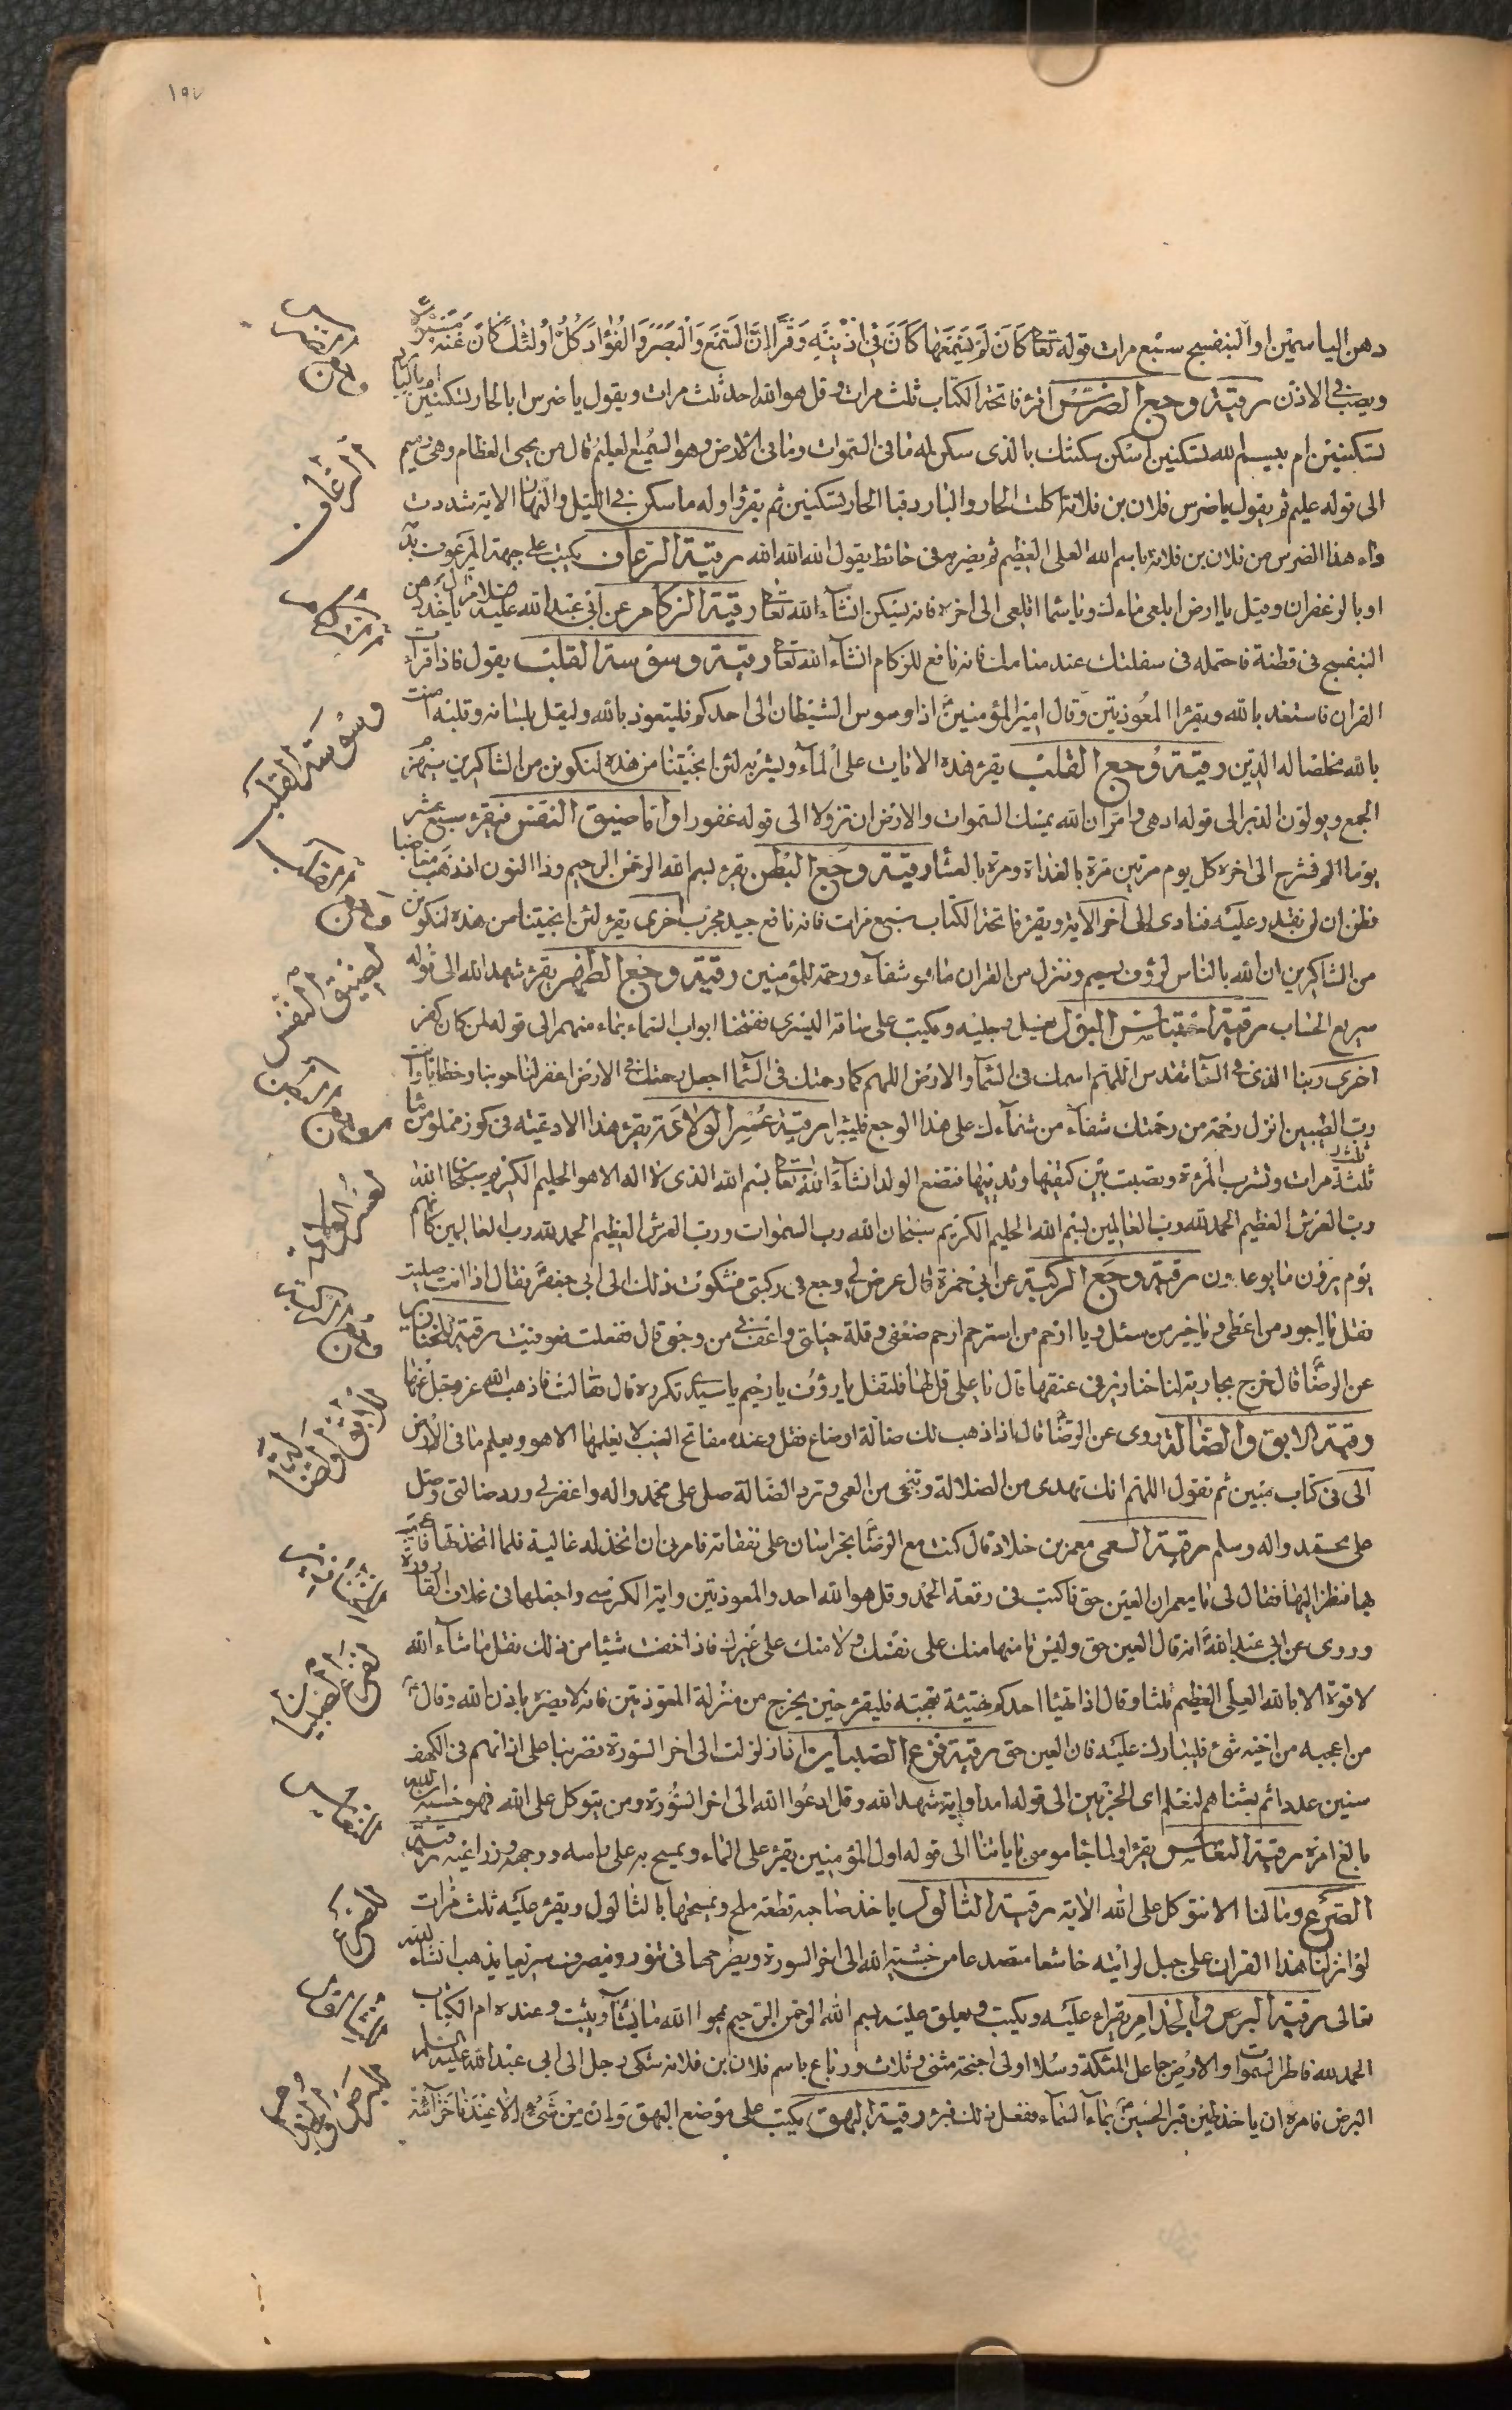 ١٩٧
دهن الياسمين او البنفسج سبع مرات قوله تعا كان لم يسمعها كان في اذنيه وقرا ان السمع والبصر والفؤاد كل اولئك كان عنه مسئولا
ويصب في الاذن رقية وجع الضرس اقرء فاتحة الكتاب ثلث مرات وقل هو الله احد ثلث مرات ويقول يا ضرس ابالحار تسكنين ام بالبارد
تسكنين ام ببسم الله تسكنين اسكن سكنتك بالذى سكن له ما في السموات وما في الارض وهو السميع العليم قال من يحيى العظام وهى رميم
الى قوله عليم ثم يقول يا ضرس فلان بن فلانة اكلت الحار والبارد فبا الحار تسكنين ثم يقرؤ وله ما سكن في الليل والنهار الاية شددت
داء هذا الضرس من فلان بن فلانة باسم الله العلى العظيم ثم يضربه في حائط يقول الله الله الله رقية الرعاف يكتب على جبهة المرعوف بدمه
او بالزعفران وقيل يا ارض ابلعى ماءك ويا سماء اقلعى الى اخره فانه يسكن انشاء الله تعا رقية الزكام عن ابى عبد الله عليه السلام ياخذ دهن
البنفسج في قطنة فاحتمله في سفلتك عند منامك فانه نافع للزكام انشاء الله تعا رقية وسوسة القلب يقول فاذا قرات
القران فاستعذ بالله ويقرء المعوذتين وقال امير المؤمنين اذا وسوس الشيطان الى احدكم فليتعوذ بالله وليقل بلسانه وقلبه امنت
بالله مخلصا له الدين رقية وجع القلب يقرء هذه الايات على الماء ويشربه لئن انجيتنا من هذه لنكونن من الشاكرين سيهزم
الجمع ويولون الدبر الى قوله ادهى وامر ان الله يمسك السموات والارض ان تزولا الى قوله غفورا واما ضيق النفس فيقرء سبع عشر
يوما الم نشرح الى اخره كل يوم مرتين مرة بالغداة ومرة بالعشاء رقية وجع البطن يقرء بسم الله الرحمن الرحيم وذا النون اذ ذهب مغاضبا
فظن ان لن نقدر عليه فنادى الى اخر الاية ويقرء فاتحة الكتاب سبع مرات فانه نافع جيد مجرب اخرى يقرء لئن انجيتنا من هذه لنكونن
من الشاكرين ان الله بالناس لرؤف رحيم وننزل من القران ما هو شفاء ورحمة للمؤمنين رقية وجع الظهر يقرء شهد الله الى قوله
سريع الحساب رقية احتباس البول يغسل رجليه ويكتب على ساقه اليسرى ففتحنا ابواب السماء بماء منهمر الى قوله لمن كان كفر
اخرى ربنا الذى في السماء تقدس اللهم اسمك في السماء والارض اللهم كما رحمتك في السماء اجعل رحمتك في الارض اغفر لنا حوبنا وخطايانا انت
رب الطيبين انزل رحمة من رحمتك شفاء من شفاءك على هذا الوجع فليبرا رقية عسر الولادة يقرء هذا الادعية في كوز مملو من ماء
ثلثة مرات وتشرب المرءة ويصب بين كتفيها وثدييها فتضع الولد انشاء الله تعا بسم الله الذى لا اله الا هو الحليم الكريم سبحان الله
رب العرش العظيم الحمد لله رب العالمين بسم الله الحليم الكريم سبحان الله رب السموات ورب العرش العظيم الحمد لله رب العالمين كانهم
يوم يرون ما يوعدون رقية وجع الركبة عن ابى حمزة قال عرض لى وجع في ركبتى فشكوت ذلك الى ابى جعفر فقال اذا انت صليت
فقل يا اجود من اعطى ويا خير من سئل ويا ارحم من استرحم ارحم ضعفى وقلة حيلتى واعفنى من وجعى قال ففعلت فعوفيت رقية الخنازير
عن الرضا قال خرج بجارية لنا خنازير في عنقها قال يا على قل لها فلتقل يا رؤف يا رحيم يا سيدى تكرره قال فقالت فاذهب الله عز وجل عنها
رقية الابق والضالة روى عن الرضا قال اذا ذهب لك ضالة او ضاع فقل وعنده مفاتح الغيب لا يعلمها الا هو ويعلم ما في الارض
الى في كتاب مبين ثم تقول اللهم انك تهدى من الضلالة وتنجى من العمى وترد الضالة صل على محمد واله واغفر لى ورد ضالتى وصل
على محمد واله وسلم رقية العين معمر بن خلاد قال كنت مع الرضا بخراسان على نفقاته فامرنى ان اتخذ له غالية فلما اتخذتها فاعجب
بها فنظر اليها فقال لى يا معمر ان العين حق فاكتب في رقعة الحمد وقل هو الله احد والمعوذتين واية الكرسى واجعلها في غلاف القارورة
وروى عن ابى عبد الله انه قال العين حق وليس تامنها منك على نفسك ولا منك على غيرك فاذا خفت شيئا من ذلك فقل ما شاء الله
لا قوة الا بالله العلى العظيم ثلثا وقال اذا تهيا احدكم تهيئة تعجبه فليقرء حين يخرج من منزله المعوذتين فانه لا يضره باذن الله وقال
من اعجبه من اخيه شئ فليبارك عليه فان العين حق رقية فزع الصبيان اذا زلزلت الى اخر السورة فضربنا على اذانهم في الكهف
سنين عددا ثم بعثناهم لنعلم اى الحزبين الى قوله امدا واية شهد الله وقل ادعوا الله الى اخر السورة ومن يتوكل على الله فهو حسبه ان الله
بالغ امره رقية النعاس يقرؤ ولما جاء موسى لميقاتنا الى قوله اول المؤمنين يقرء على الماء ويمسح به على راسه ووجهه وذراعيه رقية
الصرع وما لنا الا نتوكل على الله الاية رقية الثالول ياخذ صاحبه قطعة ملح ويمسحها بالثالول ويقرء عليه ثلث مرات
لو انزلنا هذا القران على جبل لرايته خاشعا متصدعا من خشية الله الى اخر السورة ويطرحها في تنور وينصرف سريعا يذهب انشاء الله
تعالى رقية البرص والجذام يقراء عليه ويكتب ويعلق عليه بسم الله الرحمن الرحيم يمحوا الله ما يشاء ويثبت وعنده ام الكتاب
الحمد لله فاطر السموات والارض جاعل الملئكة رسلا اولى اجنحة مثنى وثلاث ورباع باسم فلان بن فلانة شكى رجل الى ابى عبد الله عليه السلام
البرص فامره ان ياخذ طين قبر الحسين بماء السماء ففعل ذلك فبرء رقية البهق يكتب على موضع البهق وان من شئ الا عندنا خزائنه
وجع الضرس
الرعاف
الزكام
وسوسة القلب
وجع القلب
لضيق النفس
لعسر الولادة
وجع الركبة
للابق والضالة
لفزع الصبيان
النعاس
للصرع
للبرص والجذام